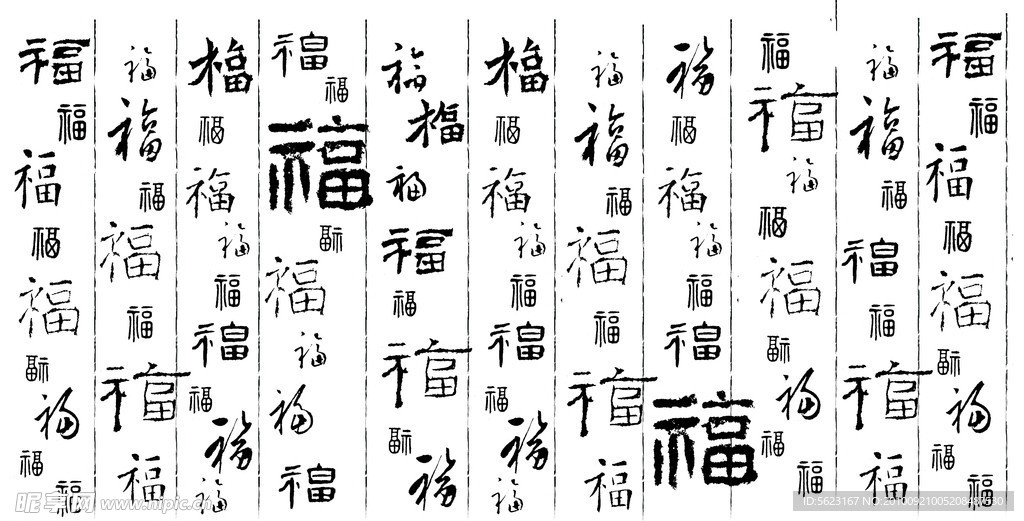 福福福福福福福福福
福福福福福福福
福福福福福福福福福
福福福福福福福
福福福福福福福
福福福福福福福福福
福福福福福福福福
福福福福福福福福
福福福福福福福福福
福福福福福福福
福福福福福福福福福
昵享网 www.nipic.cn
ID:5623167 NO:20100921005208487530